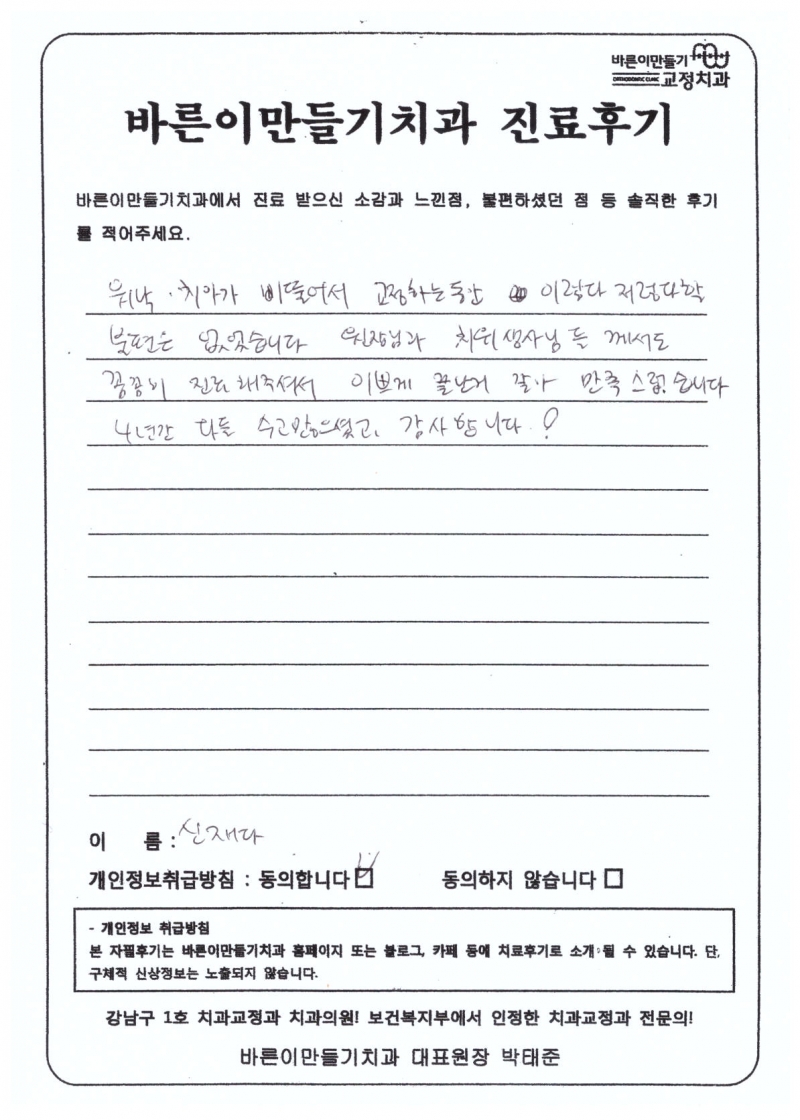 바른이만들기
ORTHODONTIC CLINIC 교정치과
바른이만들기치과 진료후기
바른이만들기치과에서 진료 받으신 소감과 느낀점, 불편하셨던 점 등 솔직한 후기
를 적어주세요.
워낙 치아가 삐뚤어서 교정하는동안 이렇다 저렇다할
불편은 없었습니다 원장님과 치위생사님들 께서도
꼼꼼히 진료 해주셔서 이쁘게 끝난거 같아 만족스럽습니다
4년간 다들 수고많으셨고, 감사합니다!
이 름 :
개인정보취급방침 : 동의합니다 동의하지 않습니다
- 개인정보 취급방침
본 자필후기는 바른이만들기치과 홈페이지 또는 블로그, 카페 등에 치료후기로 소개될 수 있습니다. 단,
구체적 신상정보는 노출되지 않습니다.
강남구 1호 치과교정과 치과의원! 보건복지부에서 인정한 치과교정과 전문의!
바른이만들기치과 대표원장 박태준